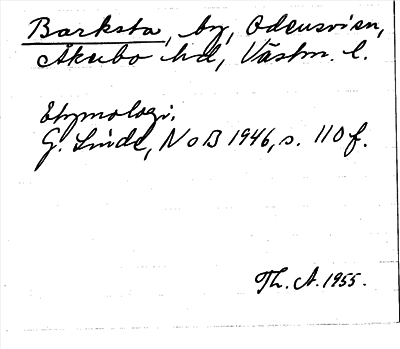 Barksta, by, Odensvien,
Åkerbo hd, Västm. l.
Etymologi.
G. Linde, NoB 1946, s. 110 f.
Th. A. 1955.